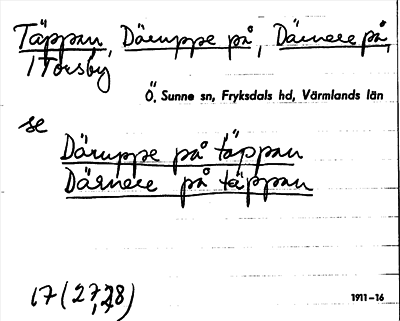 Täppan, Däruppe på, Därnere på,
i Torsby
Ö, Sunne sn, Fryksdals hd, Värmlands län
se
Däruppe på täppan
Därnere på täppan
17 (27,28)
1911-16